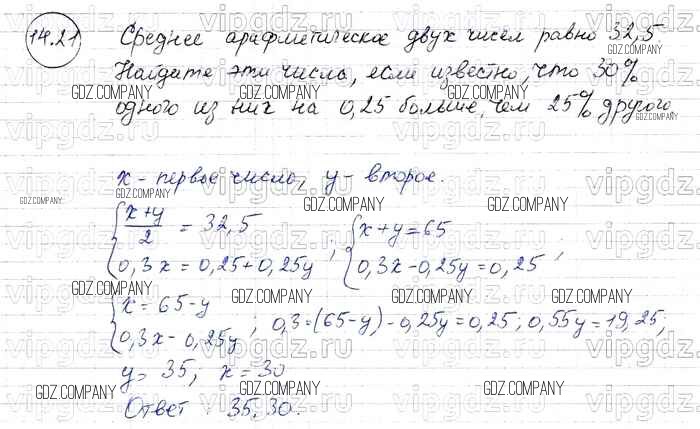 14.21 Среднее арифметическое двух чисел равно 32,5
Найдите эти числа, если известно, что 30%
одного из них на 0,25 больше, чем 25% другого
x - первое число, y - второе.
{ (x+y)/2 = 32,5 ; { x+y=65 ;
0,3x = 0,25+0,25y 0,3x-0,25y=0,25
{ x = 65-y
0,3x - 0,25y ; 0,3=(65-y)-0,25y=0,25; 0,55y=19,25;
y= 35, x=30
Ответ : 35,30.
vipgdz.ru
GDZ.COMPANY